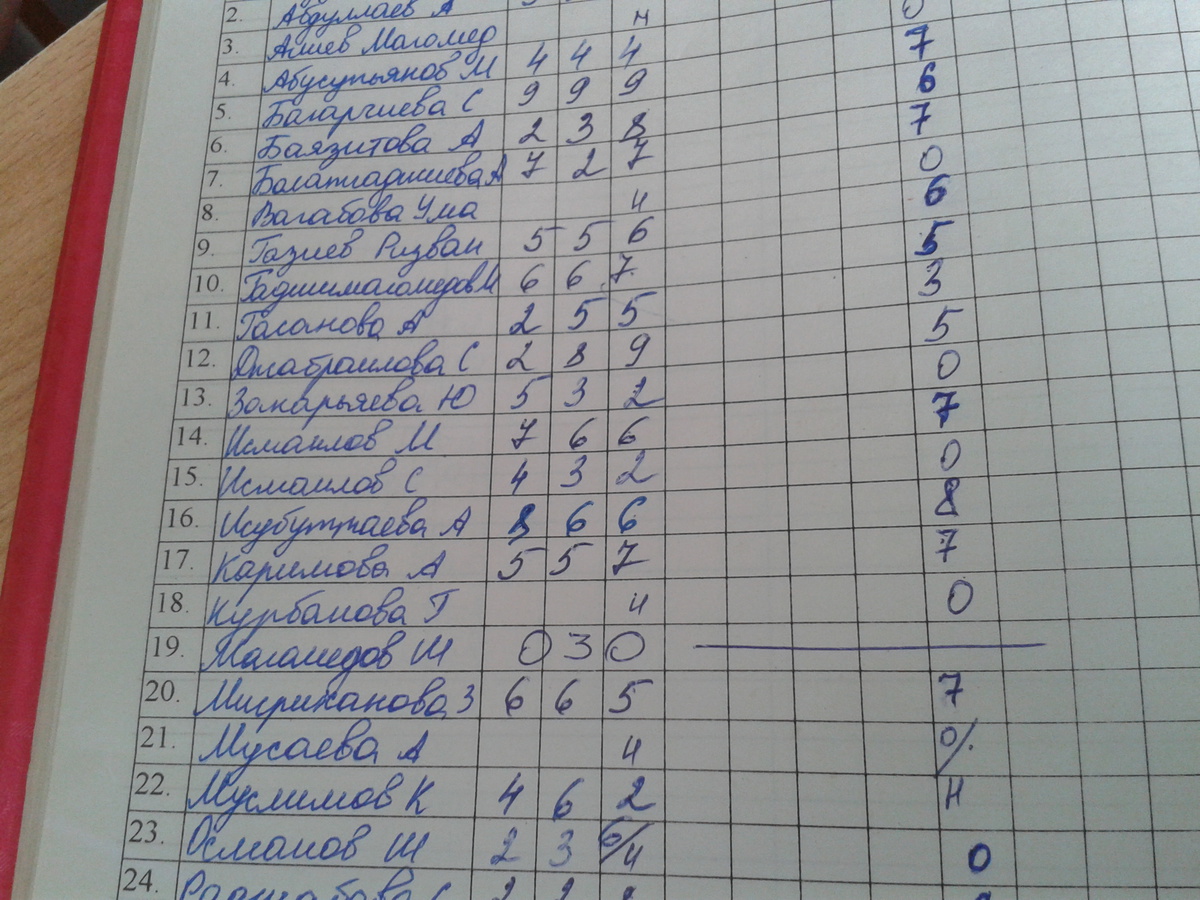 2. Абдуллаев А
3. Алиев Магомед н
4. Абусупьянов М 4 4 4 7
5. Багаргиева С 9 9 9 6
6. Баязитова А 2 3 8 7
7. Багатгаджиева А 7 2 7 0
8. Вагабова Ума н 6
9. Газиев Ризван 5 5 6 5
10. Гаджимагомедов М 6 6 7 3
11. Гасанова А 2 5 5 5
12. Джабраилова С 2 8 9 0
13. Закарьяева Ю 5 3 2 7
14. Исмаилов М 7 6 6 0
15. Исмаилов С 4 3 2 8
16. Исубуттаева А 8 6 6 7
17. Каримова А 5 5 7
18. Курбанова Г н 0
19. Магомедов Ш 0 3 0
20. Мисриханова З 6 6 5 7
21. Мусаева А н 0/.
22. Муслимов К 4 6 2 н
23. Османов Ш 2 3 6/н 0
24.